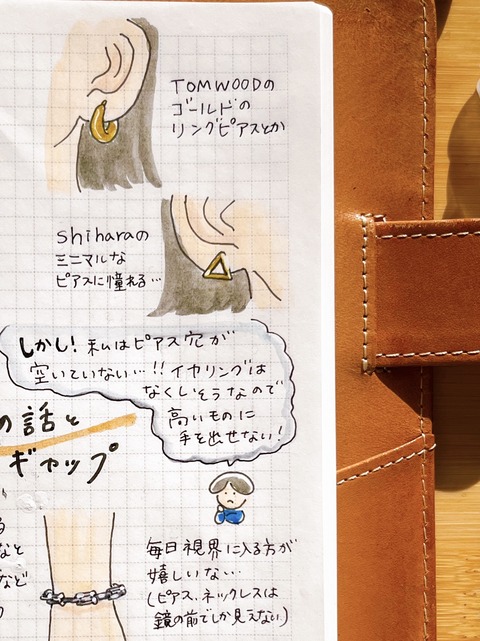 TOMWOODの
ゴールドの
リングピアスとか
shiharaの
ミニマルな
ピアスに憧れる…
しかし!私はピアス穴が
空いていない…!!イヤリングは
なくしそうなので
高いものに
手を出せない!
の話と
ギャップ
る
なと
など
毎日視界に入る方が
嬉しいな…
(ピアス、ネックレスは
鏡の前でしか見えない)